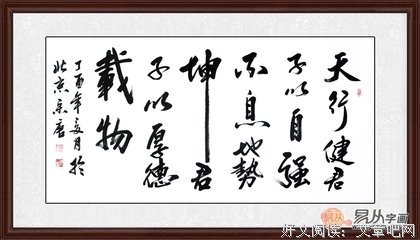 天行健君
子以自强
不息地势
坤君
子以厚德
載物
丁酉年夏月於
北京
易从字画
好文阅读：文章吧网